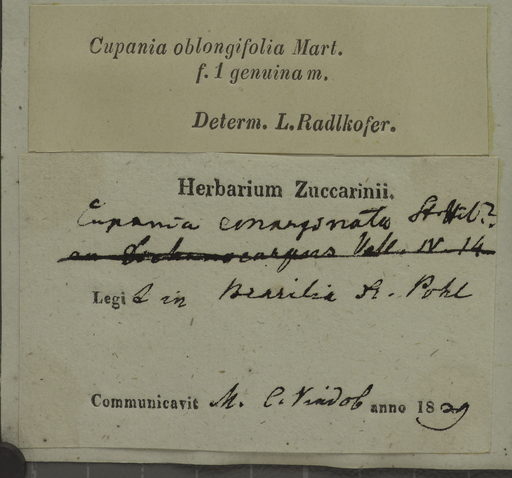 Cupania oblongifolia Mart.
f. 1 genuina m.
Determ. L. Radlkofer.
Herbarium Zuccarinii.
Cupania emarginata St. Hil?
an trichanocarpus Vell. IV. 14
Legit in Brasilia D. Pohl
Communicavit M. C. Vindob anno 1829